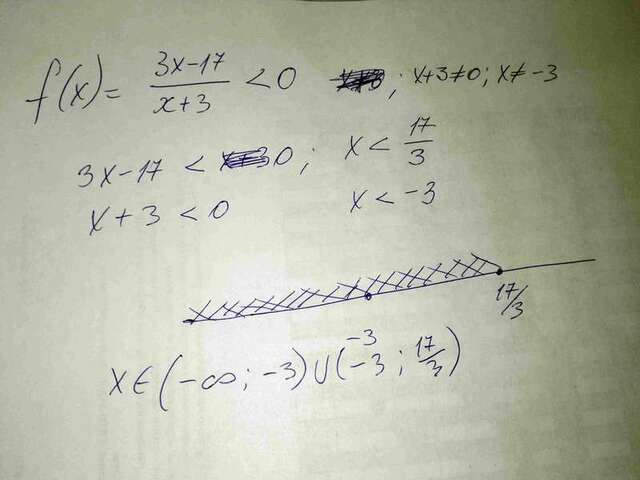 f(x) = (3x-17)/(x+3) < 0 ; x+3≠0; x≠-3
3x-17 < 0; x < 17/3
x+3 < 0 x < -3
-3 17/3
x∈(-∞; -3)∪(-3; 17/3)